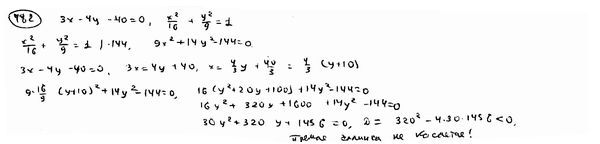 442 3x - 4y - 40 = 0, x²/16 + y²/9 = 1
x²/16 + y²/9 = 1 | · 144, 9x² + 14y² - 144 = 0
3x - 4y - 40 = 0, 3x = 4y + 40, x = 4/3 y + 40/3 = 4/3 (y+10)
9 · 16/9 (y+10)² + 14y² - 144 = 0, 16 (y² + 20y + 100) + 14y² - 144 = 0
16y² + 320y + 1600 + 14y² - 144 = 0
30y² + 320y + 1456 = 0, D = 320² - 4·30·1456 < 0,
Прямая эллипса не касается!